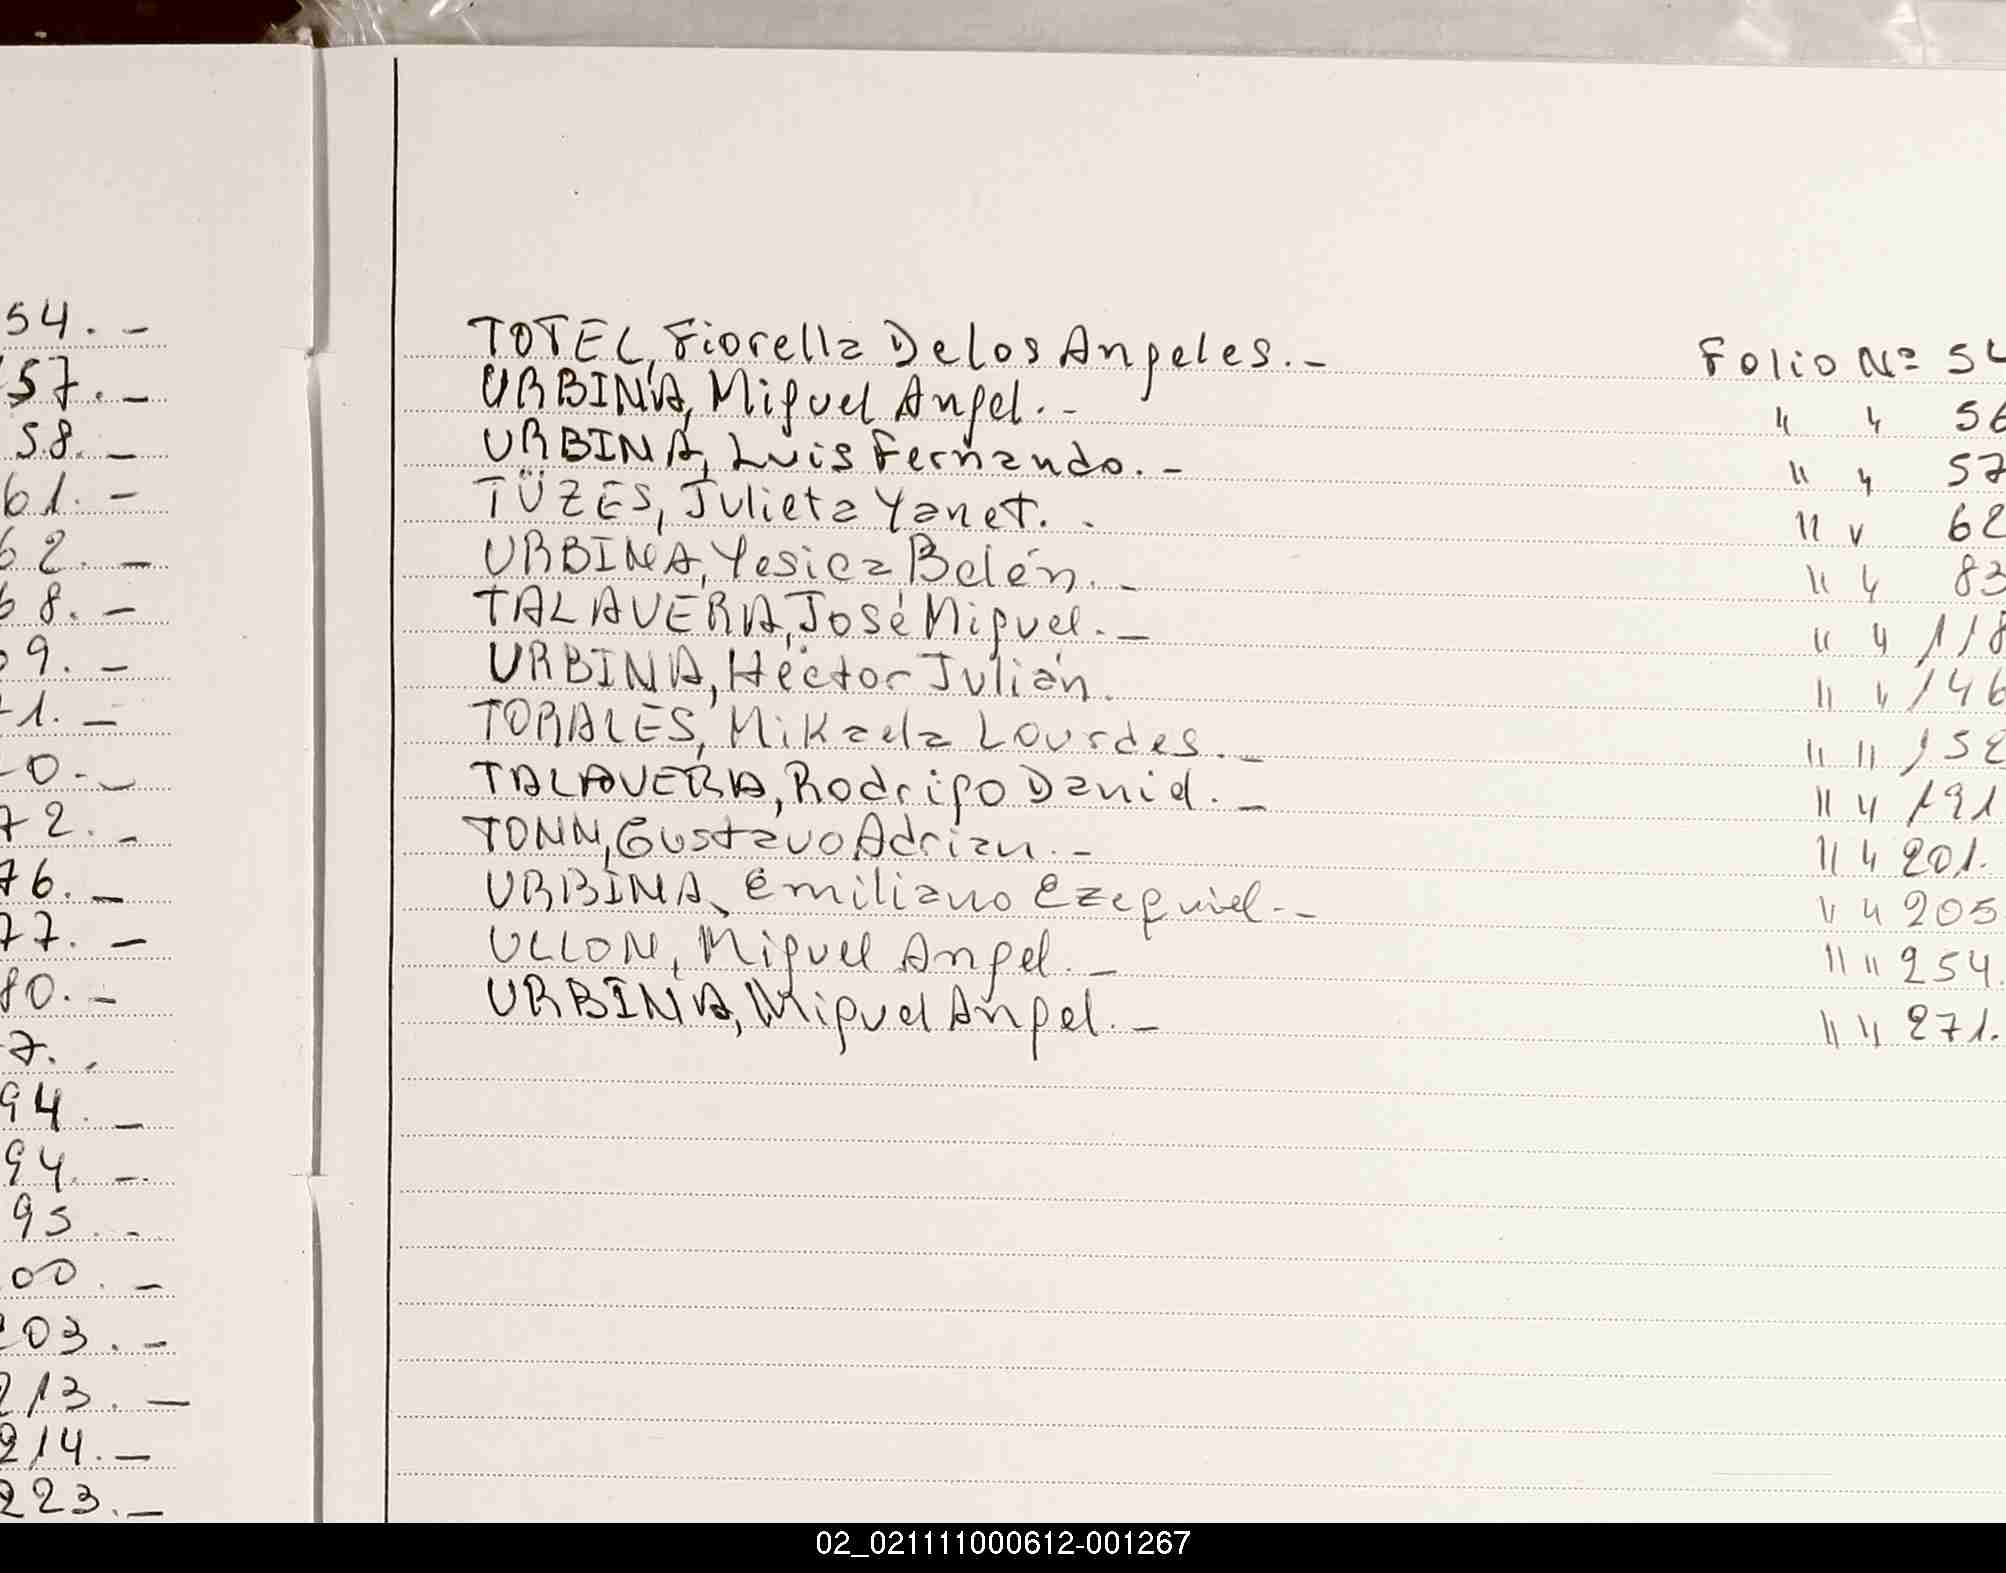 54.-
57.-
58.-
61.-
62.-
68.-
9.-
1.-
0.-
72.-
76.-
77.-
80.-
7.-
94.-
94.-
95.-
00.-
203.-
213.-
214.-
223.-
TOTEL, Fiorella De los Angeles.- Folio Nº 54
URBINA, Miguel Angel.- " " 56
URBINA, Luis Fernando.- " " 57
TÜZES, Julieta Yanet.- " " 62
URBINA, Yesica Belén.- " " 83
TALAVERA, José Miguel.- " " 118
URBINA, Héctor Julián. " " 146
TORALES, Mikaela Lourdes.- " " 152
TALAVERA, Rodrigo Daniel.- " " 191
TONN, Gustavo Adrian.- " " 201.
URBINA, Emiliano Ezequiel.- " " 205
ULLON, Miguel Angel.- " " 254.
URBINA, Miguel Angel.- " " 271.
02_021111000612-001267